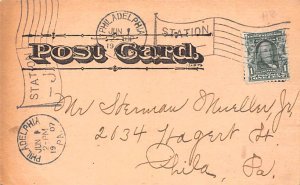 PHILADELPHIA
JUN 1
19
STATION
Post Card.
STATION
J
PHILADELPHIA
JUN 1
2-PM
19 07
PA.
Mr Herman Mueller Jr
2034 Hagert St
Phila, Pa.